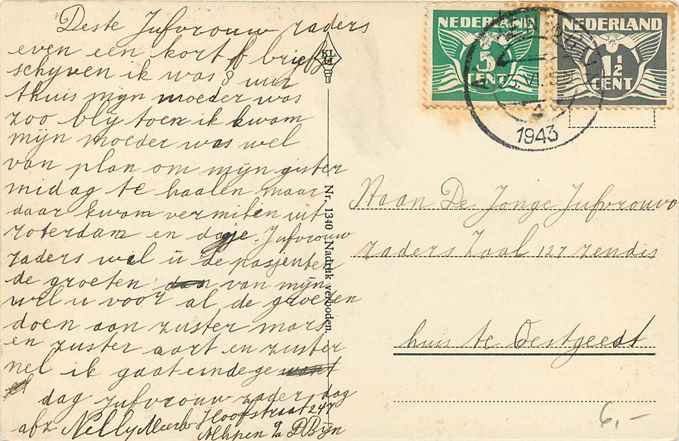 Deste Jufvrouw zaders
even een kort briefje
schyven ik was 8 uur
thuis mijn moeder was
zoo blij toen ik kwam
mijn moeder was wel
van plan om mijn gister
midag te haalen maar
daar kwam vermiten uit
roterdam en dagje. Jufvrouw
zaders wel u de pasjenten
de groeten van mijn
wel u voor al de groeten
doen aan zuster mars
en zuster aart en zuster
nel ik gaat einde
dag Jufvrouw zader dag
afz Nelly
Hoofstraat 247
Alhpen a/d Rijn
NEDERLAND
5
CENT
NEDERLAND
1½
CENT
1943
Nr. 1340 Nadruk verboden.
Naan De Jonge Jufvrouw
zaders Zaal 127 zendis
huis te Oestgeedt
6,-